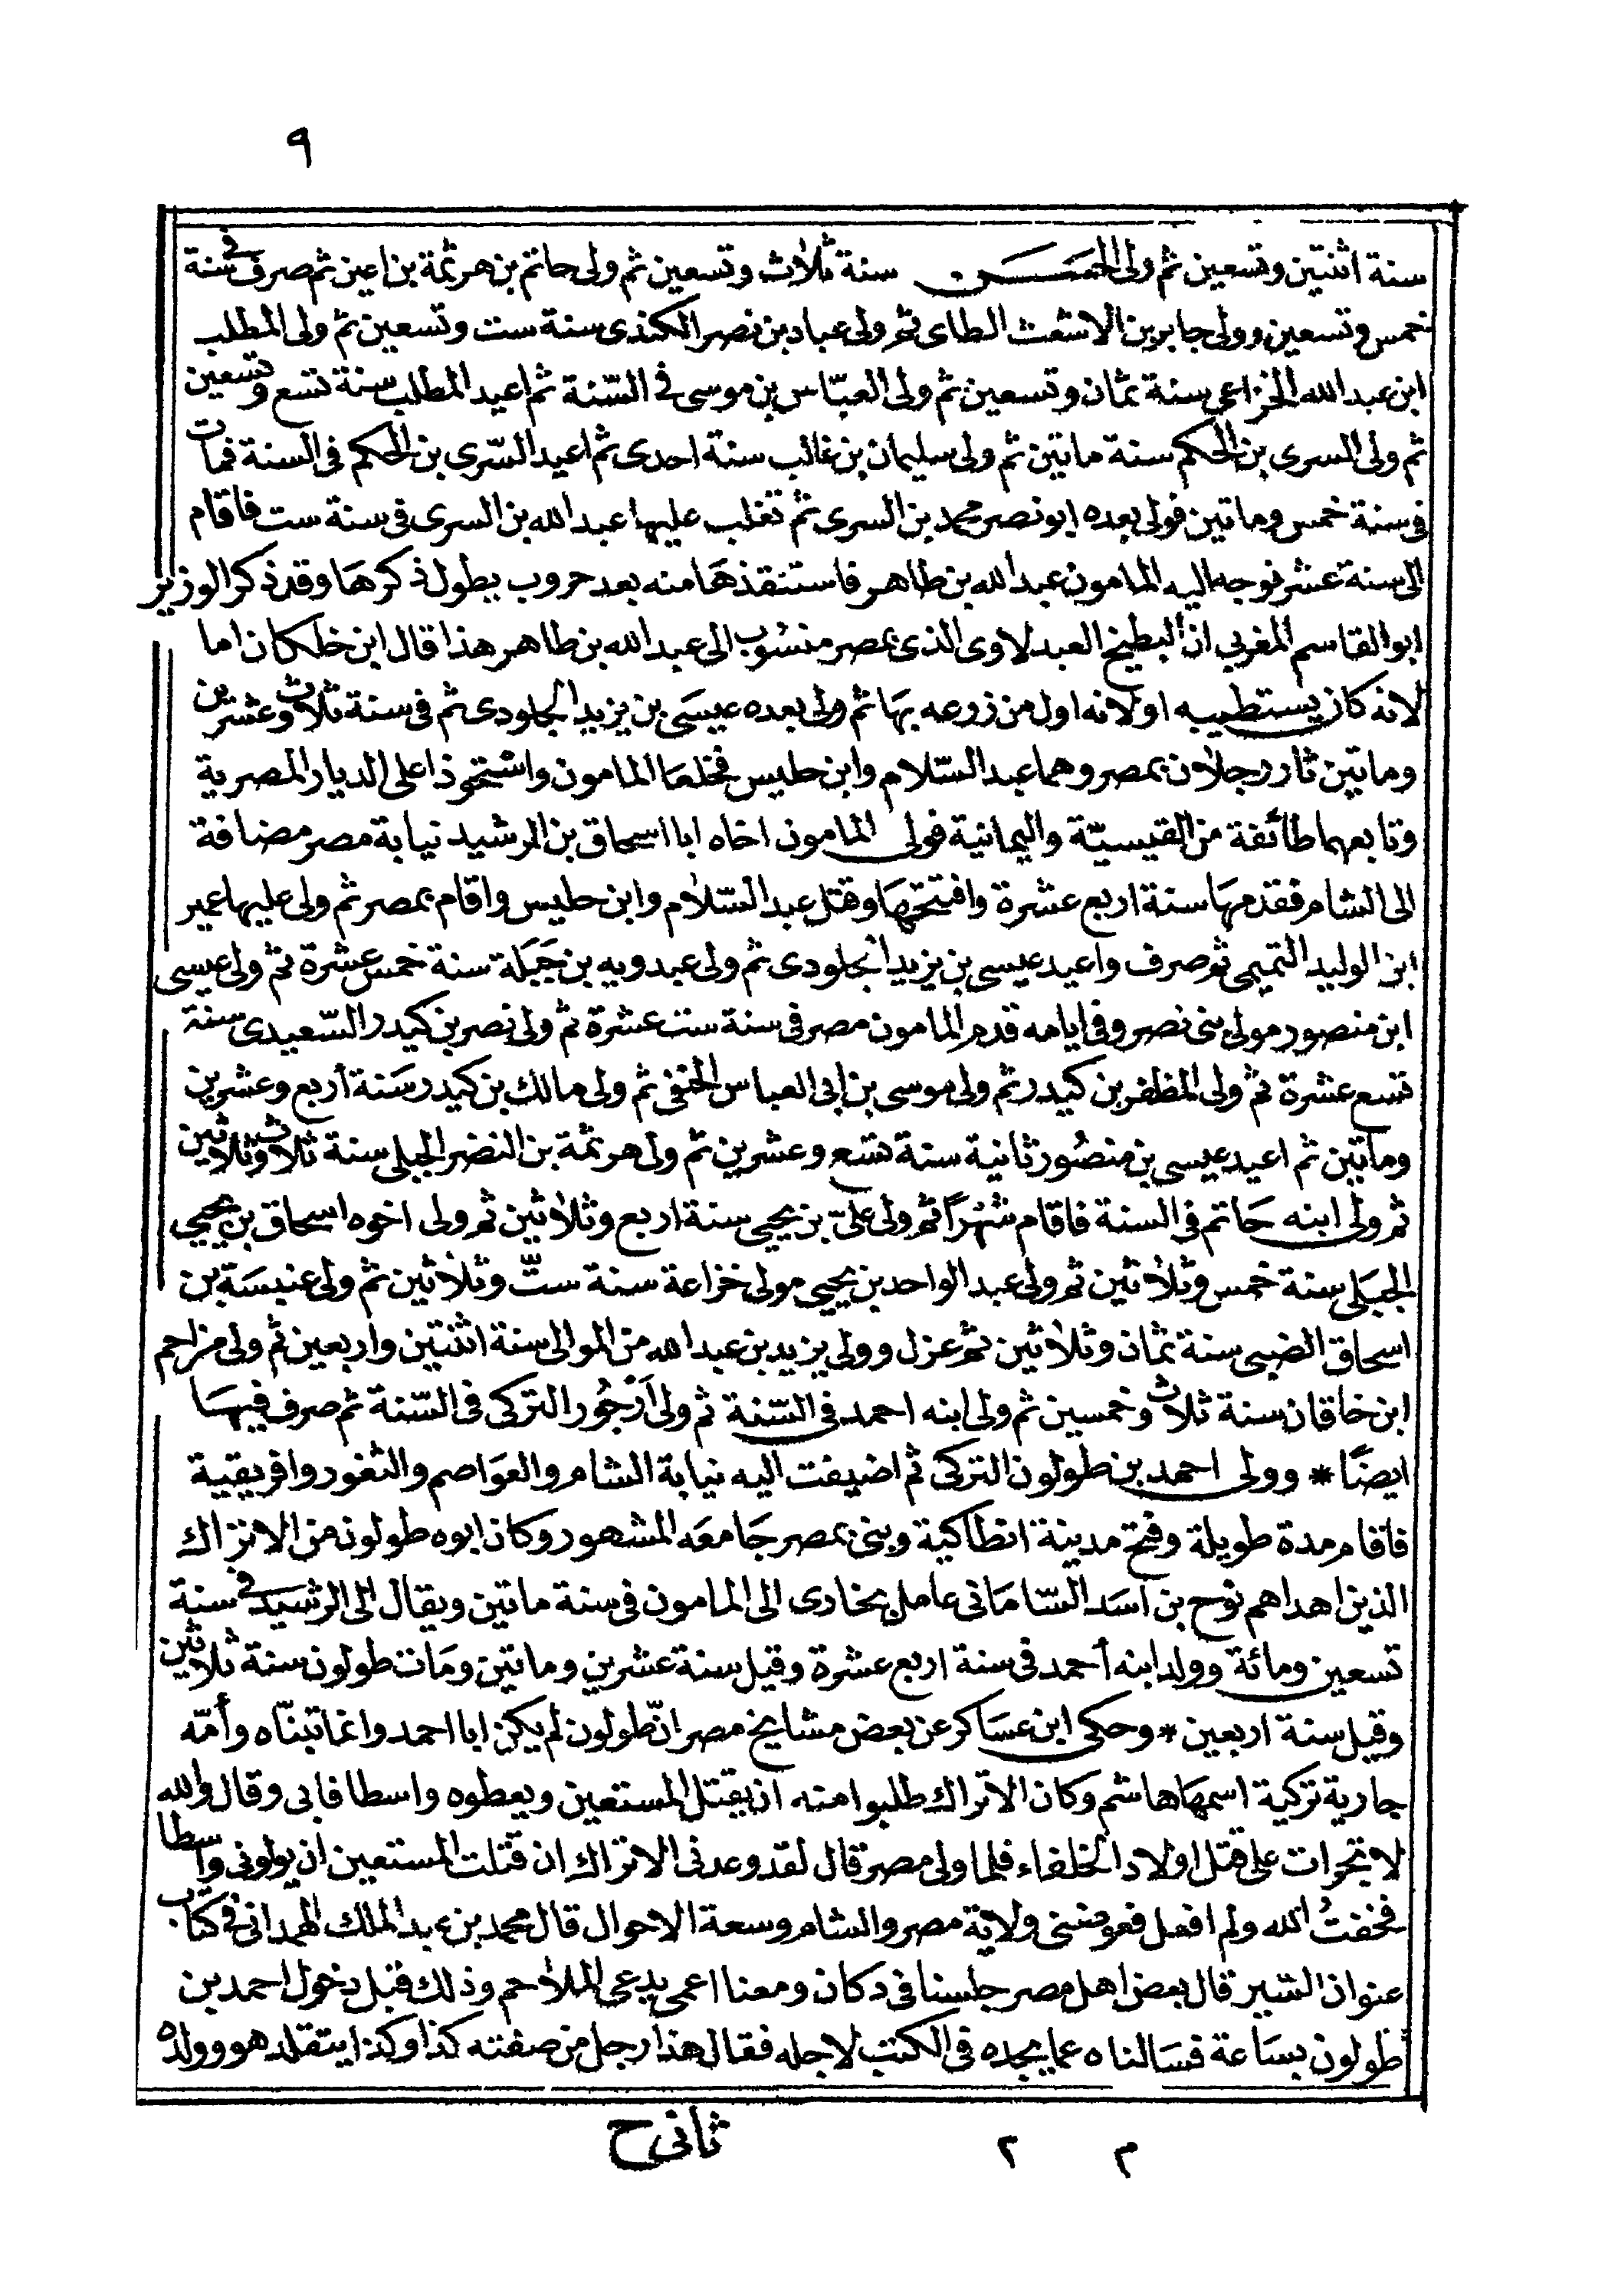 ٩
سنة اثنتين وتسعين ثم ولى الحسن سنة ثلاث وتسعين ثم ولى حاتم بن هرثمة بن اعين ثم صرف فى سنة
خمس وتسعين وولى جابر بن الاشعث الطاى ثم ولى عباد بن نصر الكندى سنة ست وتسعين ثم ولى المطلب
ابن عبد الله الخزاعى سنة ثمان وتسعين ثم ولى العبّاس بن موسى فى السّنة ثم اعيد المطلب سنة تسع وتسعين
ثم ولى السرى بن الحكم سنة ماتين ثم ولى سليمان بن غالب سنة احدى ثم اعيد السّرى بن الحكم فى السنة فمات
فى سنة خمس وماتين فولى بعده ابو نصر محمد بن السرى ثم تغلب عليها عبد الله بن السرى فى سنة ست فاقام
الى سنة عشر فوجه اليه المامون عبد الله بن طاهر فاستنقذها منه بعد حروب يطول ذكرها وقد ذكر الوزير
ابو القاسم المغربي ان البطيخ العبدلاوى الذى بمصر منسوب الى عبد الله بن طاهر هذا قال ابن خلكان اما
لانه كان يستطيبه او لانه اول من زرعه بها ثم ولى بعده عيسى بن يزيد الجلودى ثم فى سنة ثلاث وعشرين
وماتين ثار رجلان بمصر وهما عبد السّلام وابن حليس فخلعا المامون واستحوذا على الديار المصرية
وتابعهما طائفة من القيسيّة واليمانية فولى المامون اخاه ابا اسحاق بن الرشيد نيابة مصر مضافة
الى الشام فقدمها سنة اربع عشرة وافتتحها وقتل عبد السّلام وابن حليس واقام بمصر ثم ولى عليها عمير
ابن الوليد التميمى ثم صرف واعيد عيسى بن يزيد الجلودى ثم ولى عبدويه بن جَبَلة سنة خمس عشرة ثم ولى عيسى
ابن منصور مولى بنى نصر وفى ايامه قدم المامون مصر فى سنة ست عشرة ثم ولى نصر بن كيدر السّعيدى سنة
تسع عشرة ثم ولى المظفر بن كيدر ثم ولى موسى بن ابى العباس الحنفى ثم ولى مالك بن كيدر سَنة أربع وعشرين
وماتين ثم اعيد عيسى بن منصُور ثانية سنة تسع وعشرين ثم ولى هرثمة بن النضر الجبلى سنة ثلاث وثلاثين
ثم ولى ابنه حَاتم فى السنة فاقام شهرًا ثم ولى علىّ بن يحيى سنة اربع وثلاثين ثم ولى اخوه اسحاق بن يحيى
الجبَلى سنة خمس وثلاثين ثم ولى عبد الواحد بن يحيى مولى خزاعة سنة ستّ وثلاثين ثم ولى عنبسَة بن
اسحاق الضبى سنة ثمان وثلاثين ثم عزل وولى يزيد بن عبد الله من الموالى سنة اثنتين واربعين ثم ولى مزاحم
ابن خاقان سنة ثلاث وخمسين ثم ولى ابنه احمد فى السّنة ثم ولى أرْجُور التركى فى السّنة ثم صرف فيهَا
ايضًا * وولى احمد بن طولون التركى ثم اضيفت اليه نيابة الشام والعوَاصم والثغور وافريقية
فاقام مدة طويلة وفتح مدينة انطاكية وبنى بمصر جَامعَه المشهور وكان ابوه طولون من الاتراك
الذين اهداهم نوح بن اسَد السّامَانى عامل بخارى الى المامون فى سنة ماتين ويقال الى الرشيد فى سنة
تسعين ومائة وولد ابنه أحمد فى سنة اربع عشرة وقيل سنة عشرين وماتين ومَات طولون سنة ثلاثين
وقيل سنة اربعين * وحكى ابن عسَاكر عن بعض مشايخ مصر انّ طولون لم يكن ابا احمد وانما تبنّاه وأمّه
جارية تركية اسمهَا هاشم وكان الاتراك طلبوا منه ان يقتل المستعين ويعطوه واسطا فابى وقال والله
لا تجرات على قتل اولاد الخلفاء فلما ولى مصر قال لقد وعدنى الاتراك ان قتلت المستعين ان يولونى واسطا
فخفتُ الله ولم افعل فعوضنى ولاية مصر والشام وسعة الاحوال قال محمد بن عبد الملك الهمدانى فى كتاب
عنوان السّير قال بعض اهل مصر جلسنا فى دكان ومعنا اعمى يدعى الملاحم وذلك قبل دخول احمد بن
طولون بسَاعة فسَالناه عما يجده فى الكتب لاجله فقال هذا رجل من صفته كذا وكذا يتقلد هو وولده
م ٢ ثانى ح